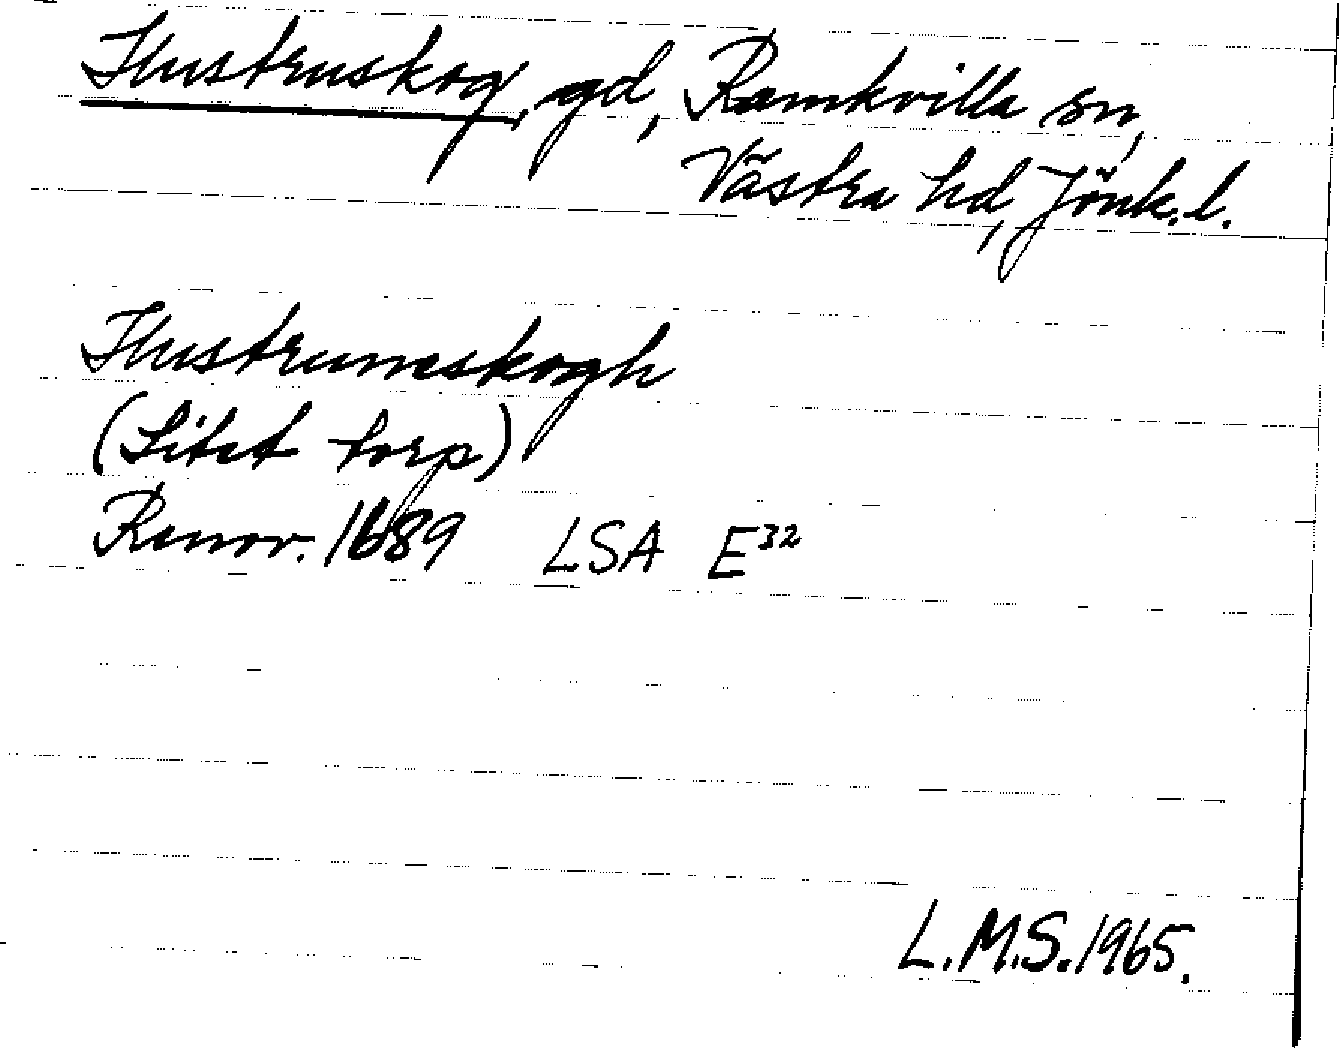 Hustruskog, gd, Ramkvilla sn,
Västra hd, Jönk.l.
Hustruneskogh
(Litet torp)
Renov. 1689 LSA E³²
L.M.S. 1965.